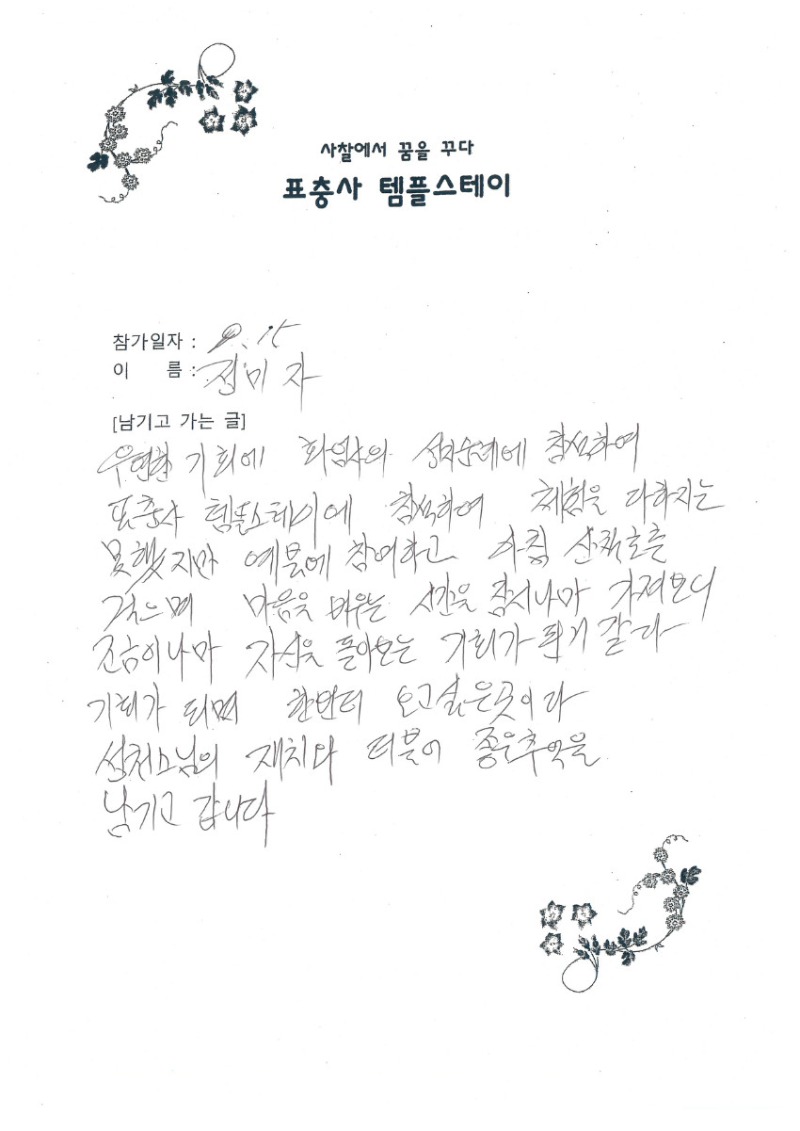 사찰에서 꿈을 꾸다
표충사 템플스테이
참가일자 : 9. 15
이 름 : 전미자
[남기고 가는 글]
우연한 기회에 화엄사의 성지순례에 참석하여
표충사 템플스테이에 참석하여 체험을 다하지는
못했지만 예불에 참여하고 아침 산책로를
걸으며 마음을 비우는 시간을 잠시나마 가져보니
조금이나마 자신을 돌아보는 기회가 된거 같다
기회가 되면 한번더 오고싶은곳이다
스님의 재치와 더불어 좋은추억을
남기고 갑니다